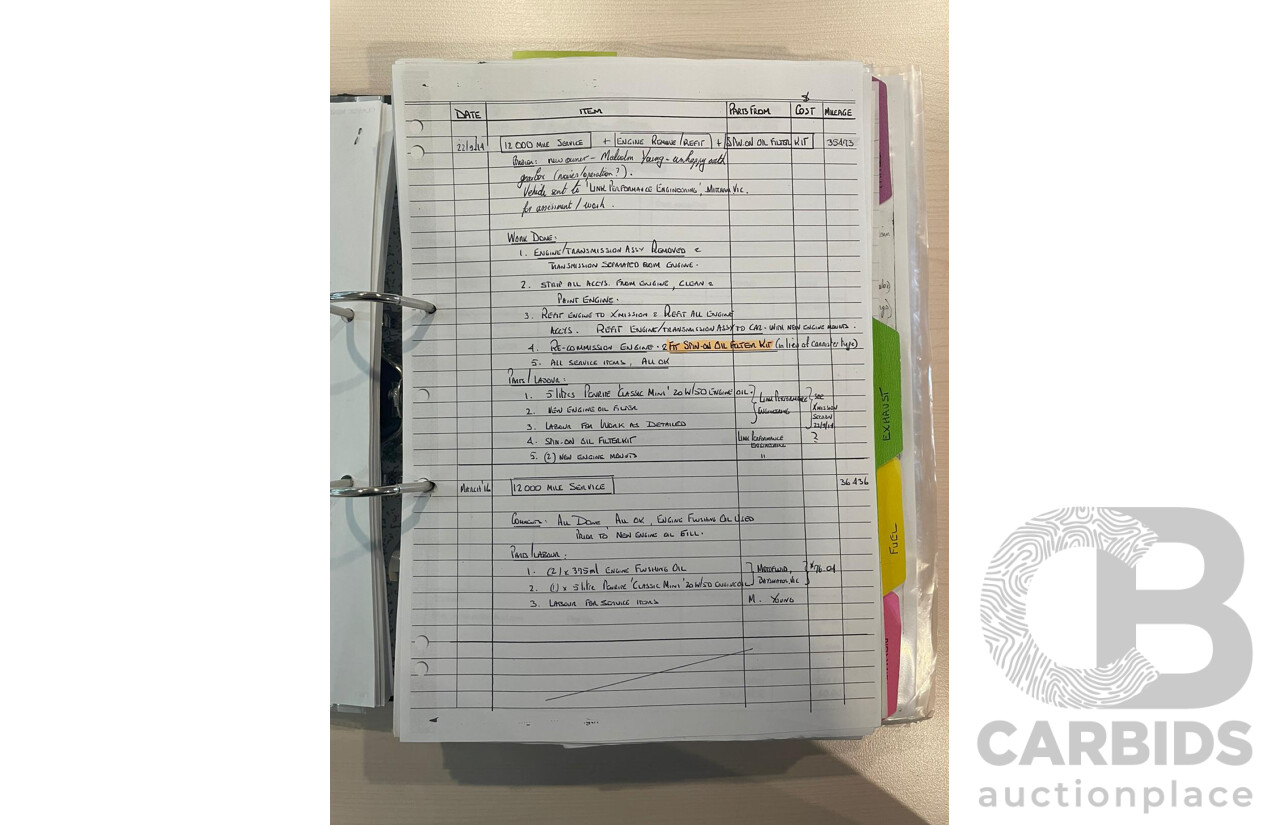 $
DATE ITEM PARTS FROM COST MILEAGE
22/9/14 12 000 MILE SERVICE + ENGINE REMOVE/REFIT + SPIN-ON OIL FILTER KIT 35473
NEW OWNER - Malcolm Young - unhappy with
gearbox (noises/operation?).
Vehicle sent to 'LINK PERFORMANCE ENGINEERING', VIC.
for assessment / work.
WORK DONE:
1. ENGINE/TRANSMISSION ASSY REMOVED &
TRANSMISSION SEPARATED FROM ENGINE.
2. STRIP ALL ACCYS. FROM ENGINE, CLEAN &
PAINT ENGINE.
3. REFIT ENGINE TO XMISSION & REFIT ALL ENGINE
ACCYS. REFIT ENGINE/TRANSMISSION ASSY TO CAR - WITH NEW ENGINE MOUNTS.
4. RE-COMMISSION ENGINE - & FIT SPIN-ON OIL FILTER KIT (in lieu of cannister type)
5. ALL SERVICE ITEMS, ALL OK
PARTS/LABOUR:
1. 5 litres PENRITE 'CLASSIC MINI' 20W/50 ENGINE OIL. LINK PERFORMANCE SEE
2. NEW ENGINE OIL FILTER ENGINEERING XMISSION
3. LABOUR FOR WORK AS DETAILED SECTION 22/9/14
4. SPIN-ON OIL FILTER KIT LINK PERFORMANCE ENGINEERING ?
5. (2) NEW ENGINE MOUNTS "
MARCH '16 12 000 MILE SERVICE 36 436
COMMENTS: ALL DONE, ALL OK, ENGINE FLUSHING OIL USED
PRIOR TO NEW ENGINE OIL FILL.
PARTS/LABOUR:
1. (2) x 375ml ENGINE FLUSHING OIL $76.01
2. (1) x 5 litre PENRITE 'CLASSIC MINI' 20W/50 ENGINE OIL VIC
3. LABOUR FOR SERVICE ITEMS M. YOUNG
EXHAUST
FUEL
CB
CARBIDS
auctionplace